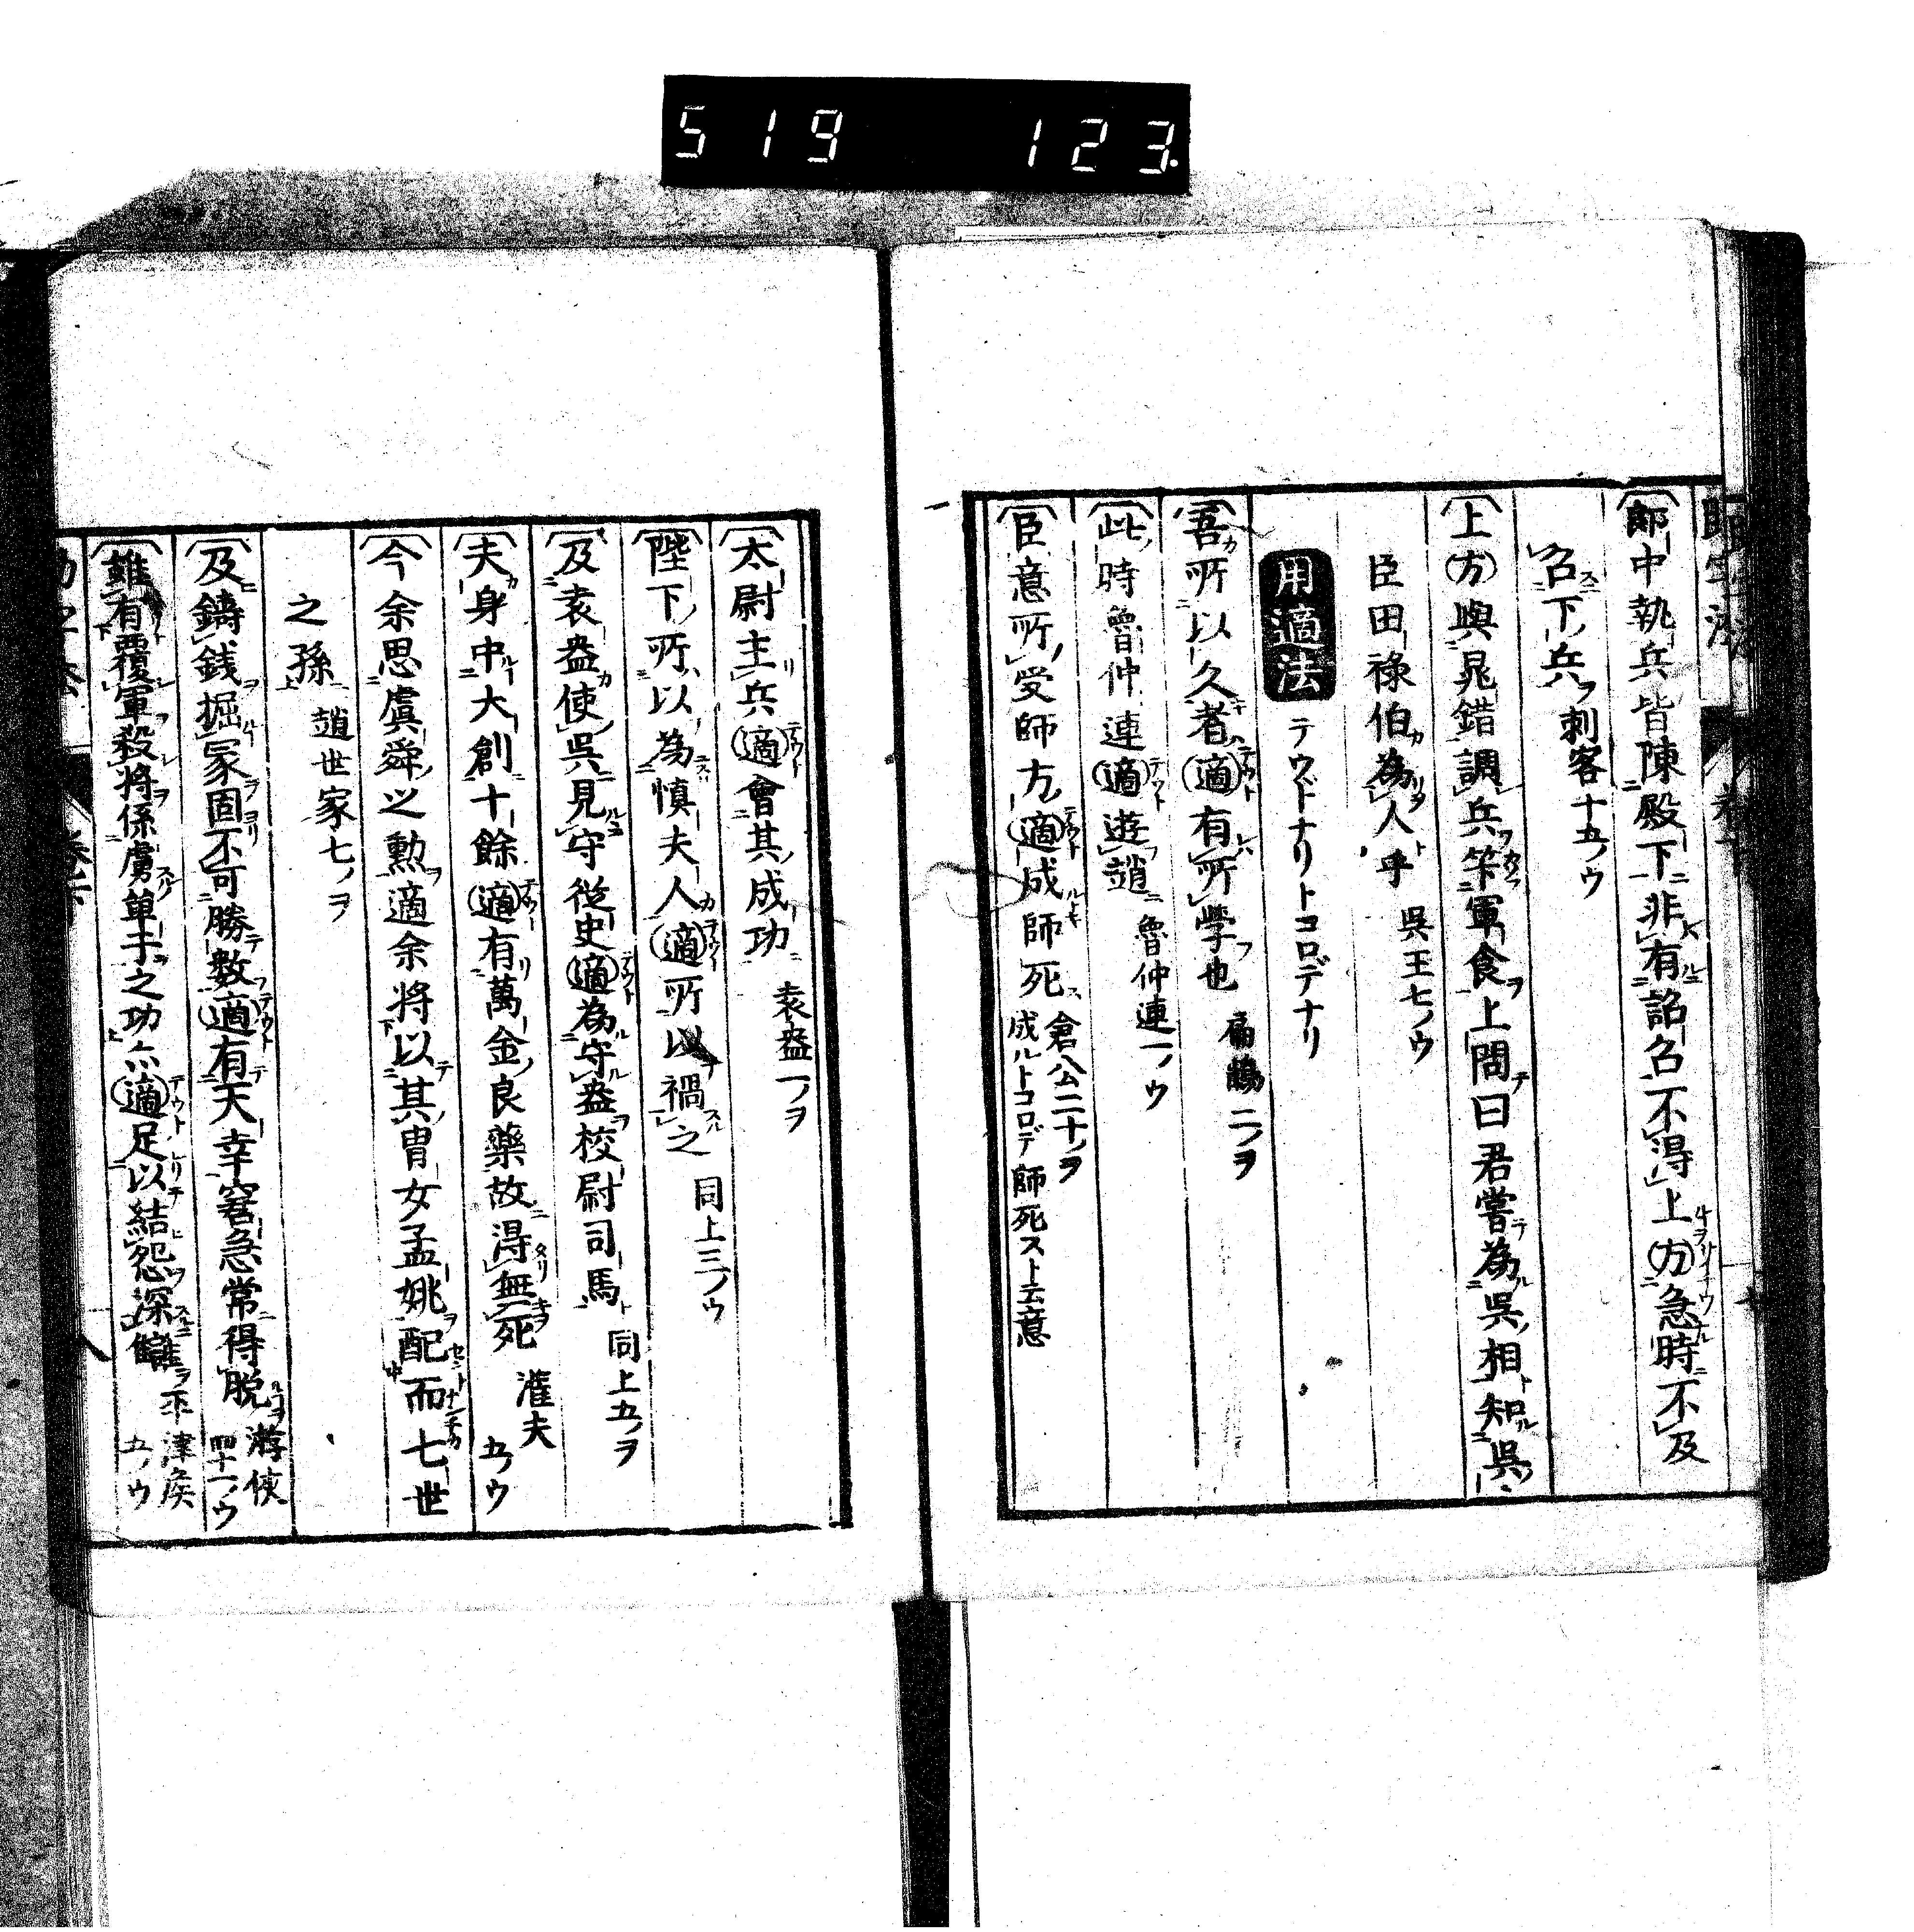 519 123
郎中執兵皆陳殿下非有詔召不得上方急時不及
召下兵 刺客十五ノウ
上方與晁錯調兵筭軍食上問曰君嘗為吳相知吳
臣田祿伯為人乎 吳王七ノウ
用適法 テウドナリトコロデナリ
吾所以久者適有所學也 扁鵲二ノヲ
此時魯仲連適遊趙 魯仲連一ノウ
臣意所受師方適成師死 倉公二十ノヲ
成ルトコロデ師死スト云意
太尉主兵適會其成功 袁盎一ノヲ
陛下所以為慎夫人適所以禍之 同上三ノウ
及袁盎使吳見守從史適為守盎校尉司馬 同上五ノヲ
夫身中大創十餘適有萬金良藥故得無死 灌夫五ノウ
今余思虞舜之勲適余将以其冑女孟姚配而七世
之孫 趙世家七ノヲ
及鑄錢掘冢固不可勝数適有天幸窘急常得脱 游侠四十一ノウ
雖有覆軍殺将係虜單于之功亦適足以結怨深讎 平津侯五ノウ